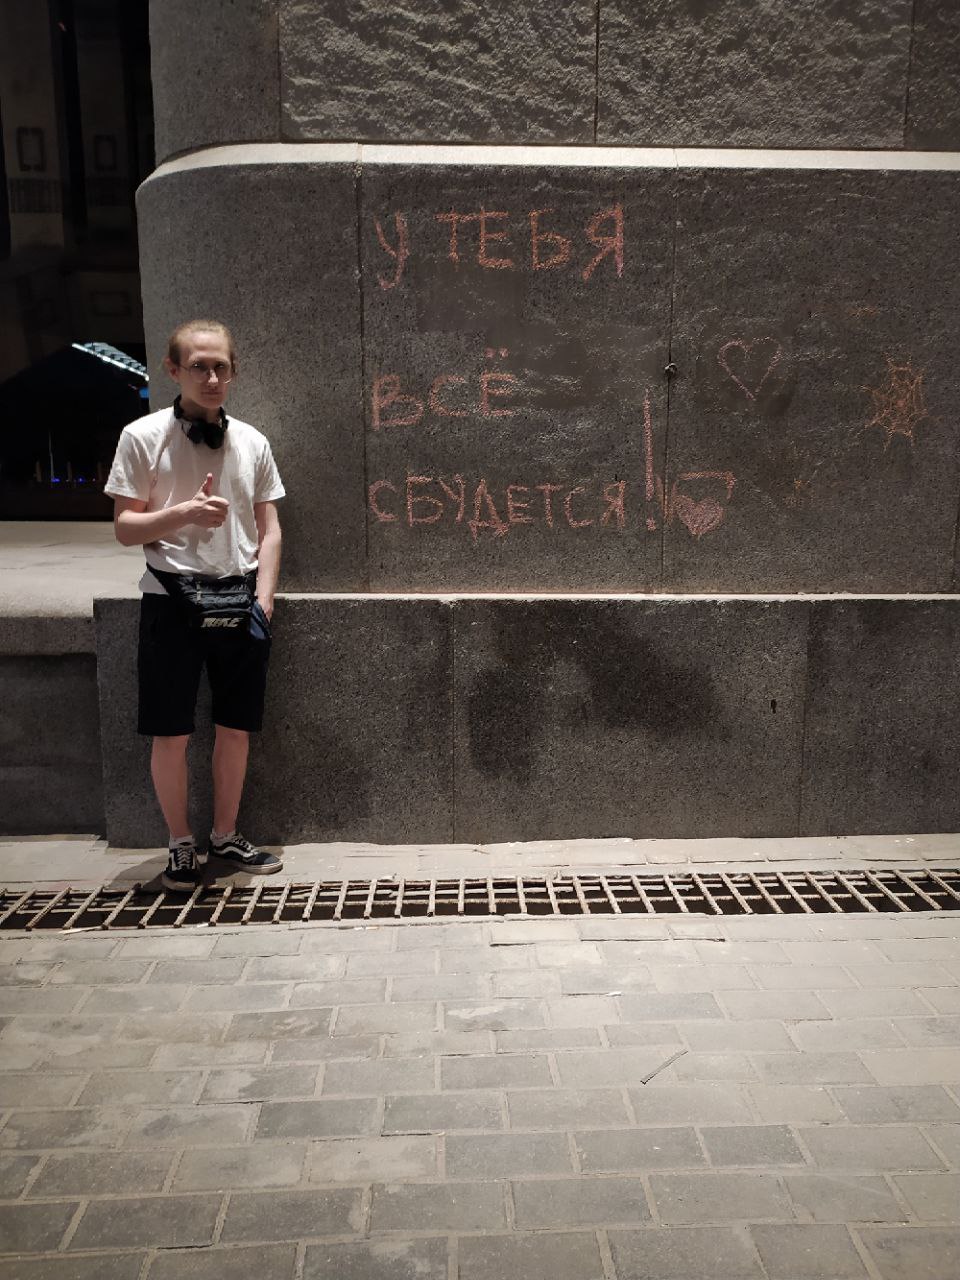 У ТЕБЯ
ВСЁ
СБУДЕТСЯ!
NIKE